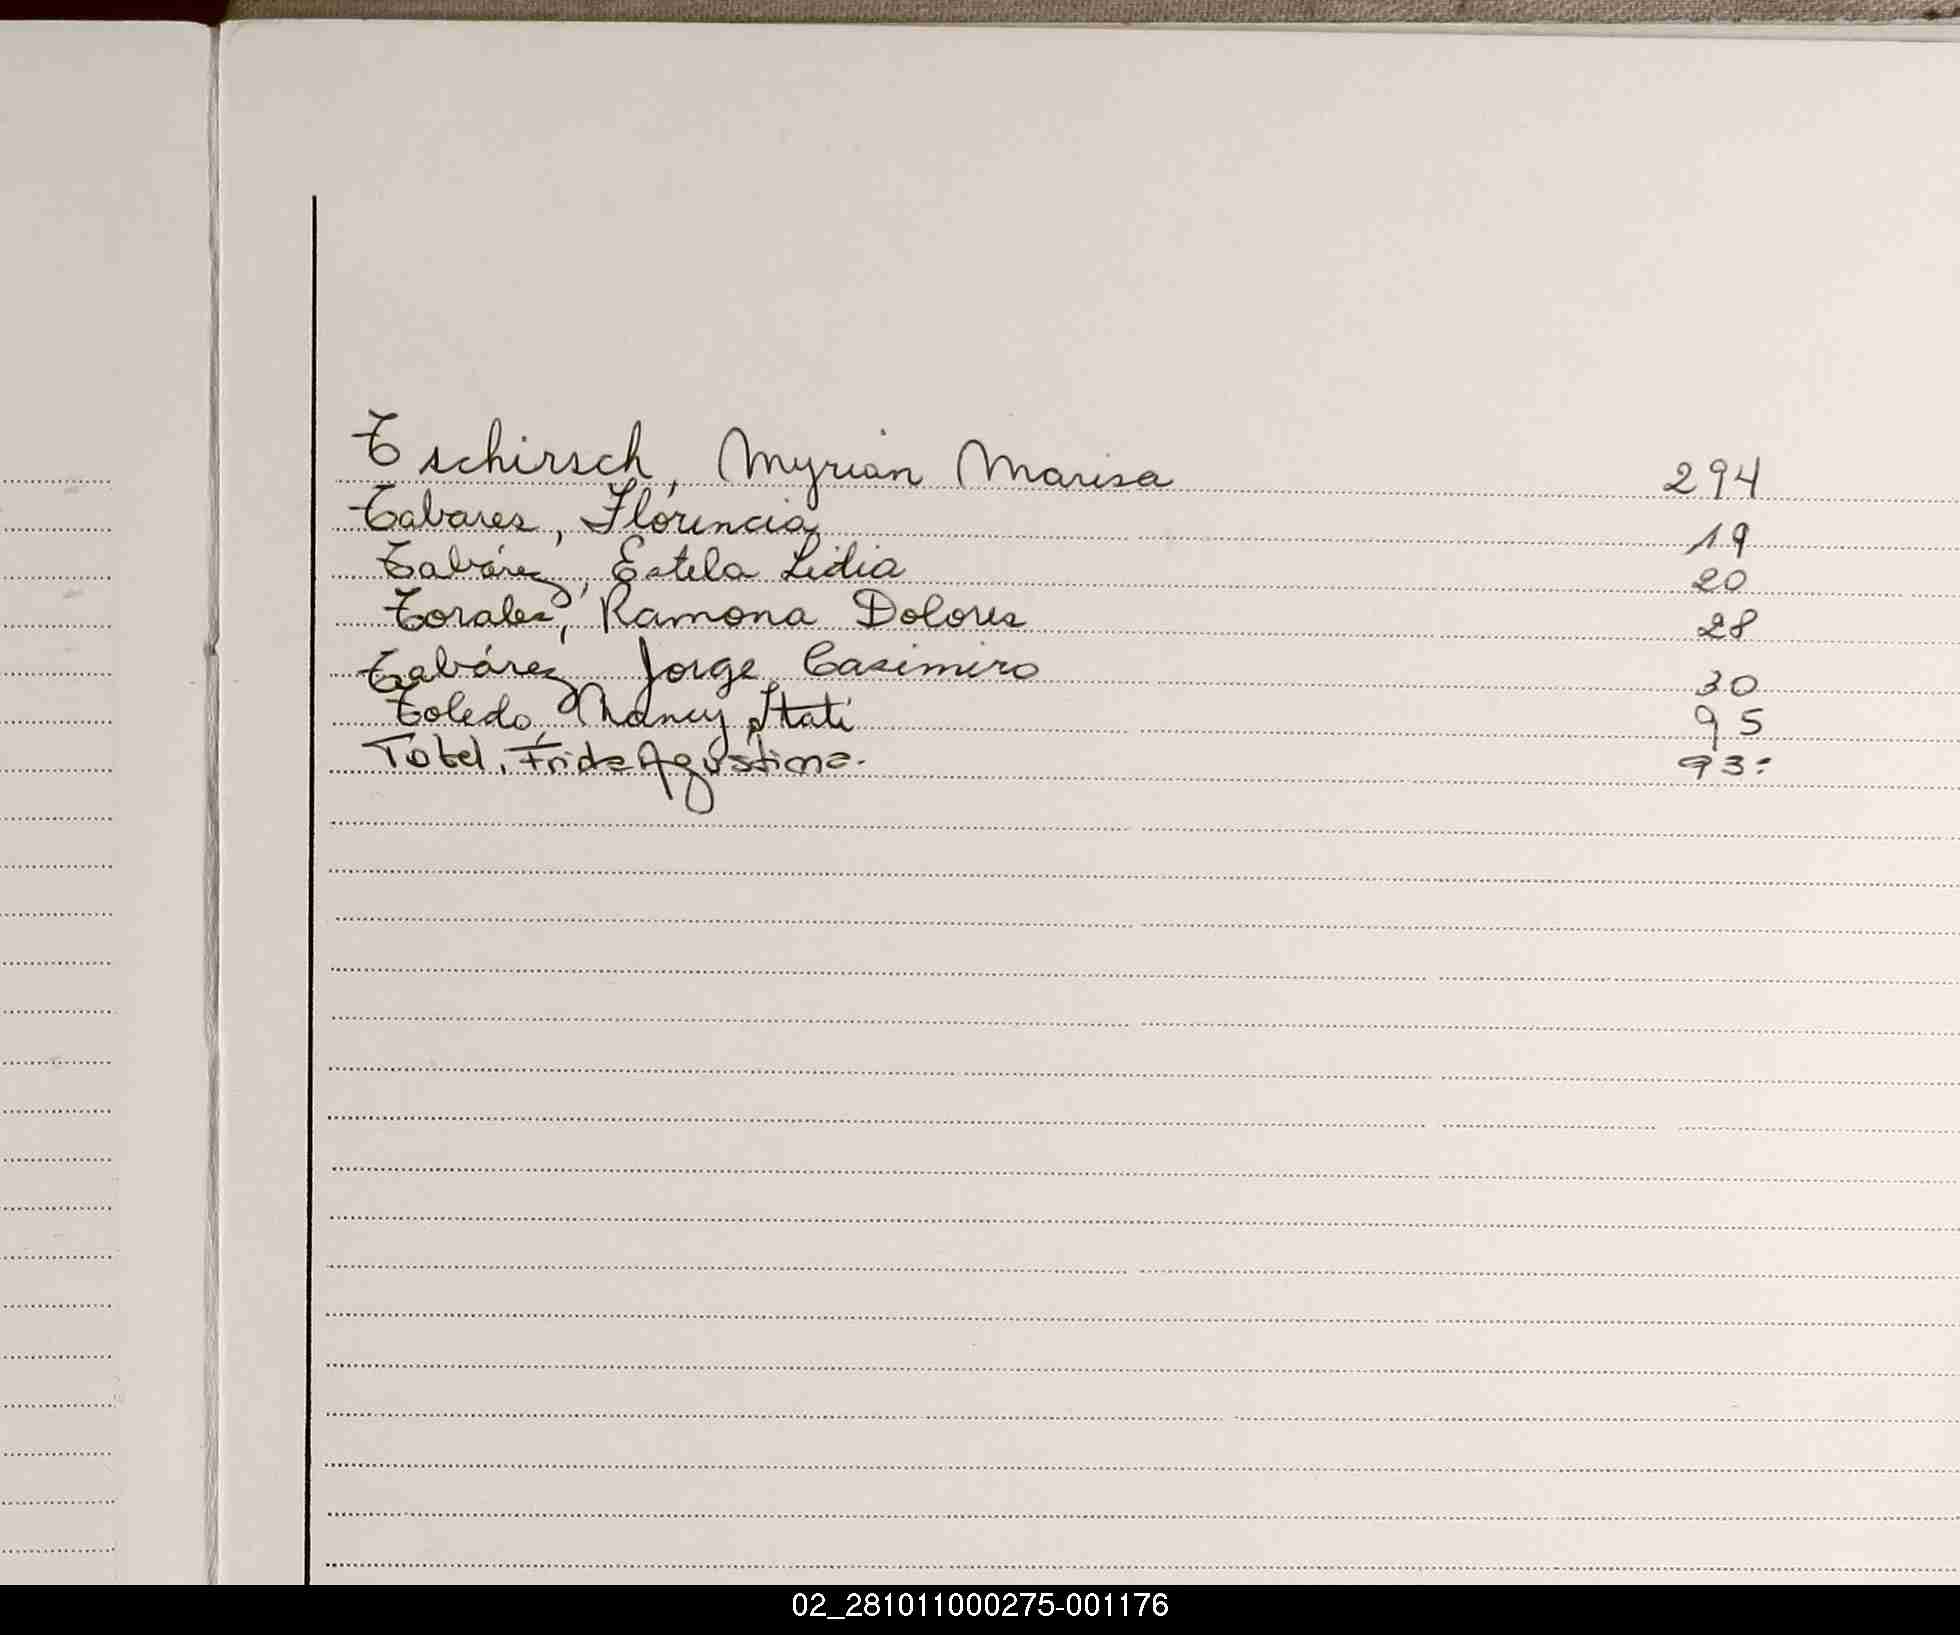 Tschirsch, Myrian Marisa 294
Tabares, Florencia 19
Tabárez, Estela Lidia 20
Torales, Ramona Dolores 28
Tabárez Jorge Casimiro 30
Toledo, Nancy Itatí 95
Tobel, Frida Agustina. 93:
02_281011000275-001176